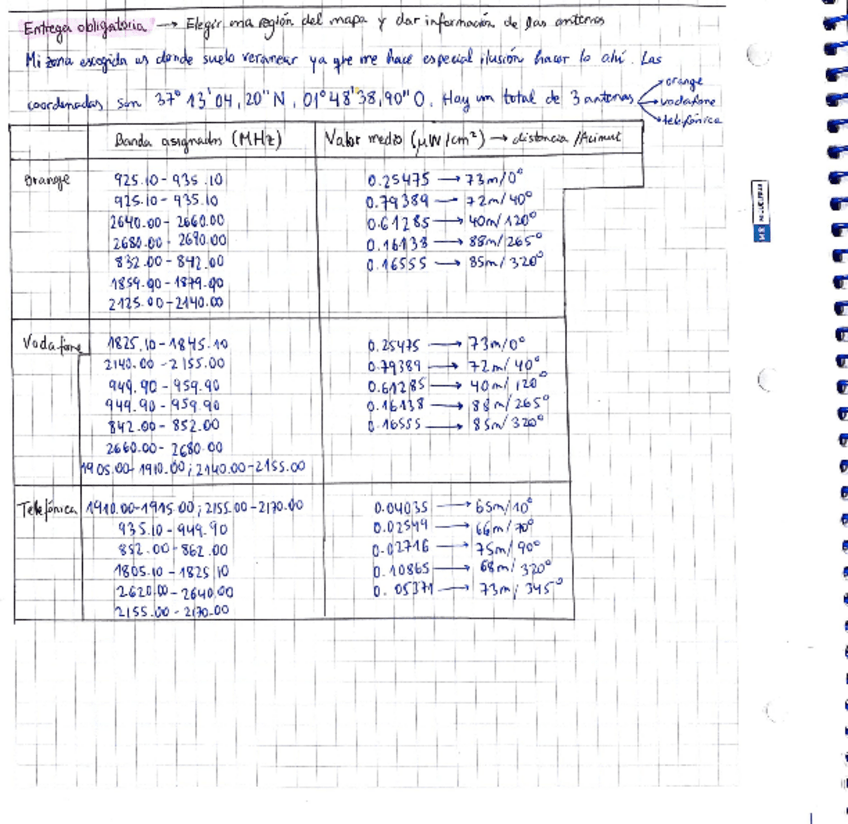 Entrega obligatoria → Elegir una región del mapa y dar información de las antenas
Mi zona escogida es donde suelo veranear ya que me hace especial ilusión hacerlo ahí. Las
coordenadas son 37° 13' 04,20" N, 01° 48' 38,90" O. Hay un total de 3 antenas → orange
→ vodafone
→ telefónica
Banda asignados (MHz) Valor medio (μW/cm²) → distancia /Acimut
Orange 925.10 - 935.10 0.25475 → 73m/0°
925.10 - 935.10 0.79389 → 72m/40°
2640.00 - 2660.00 0.61285 → 40m/120°
2680.00 - 2690.00 0.16138 → 88m/265°
832.00 - 842.00 0.16555 → 85m/320°
1859.00 - 1879.00
2125.00 - 2140.00
Vodafone 1825.10 - 1845.10 0.25475 → 73m/0°
2140.00 - 2155.00 0.79389 → 72m/40°
949.90 - 959.90 0.61285 → 40m/120°
949.90 - 959.90 0.16138 → 88m/265°
842.00 - 852.00 0.16555 → 85m/320°
2660.00 - 2680.00
1905.00 - 1910.00 ; 2140.00 - 2155.00
Telefónica 1910.00 - 1915.00 ; 2155.00 - 2170.00 0.04035 → 65m/10°
935.10 - 949.90 0.02549 → 66m/70°
852.00 - 862.00 0.02716 → 75m/90°
1805.10 - 1825.10 0.10865 → 68m/320°
2620.00 - 2640.00 0.05371 → 73m/345°
2155.00 - 2170.00